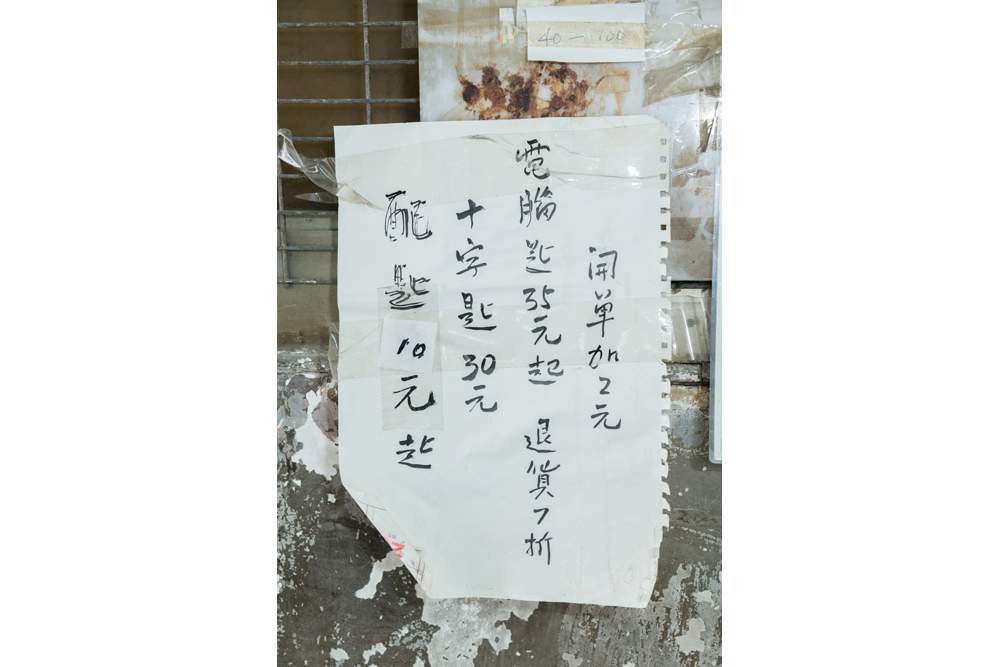 40 — 100
配匙10元起
十字匙30元
電腦匙35元起 退貨7折
開單加2元